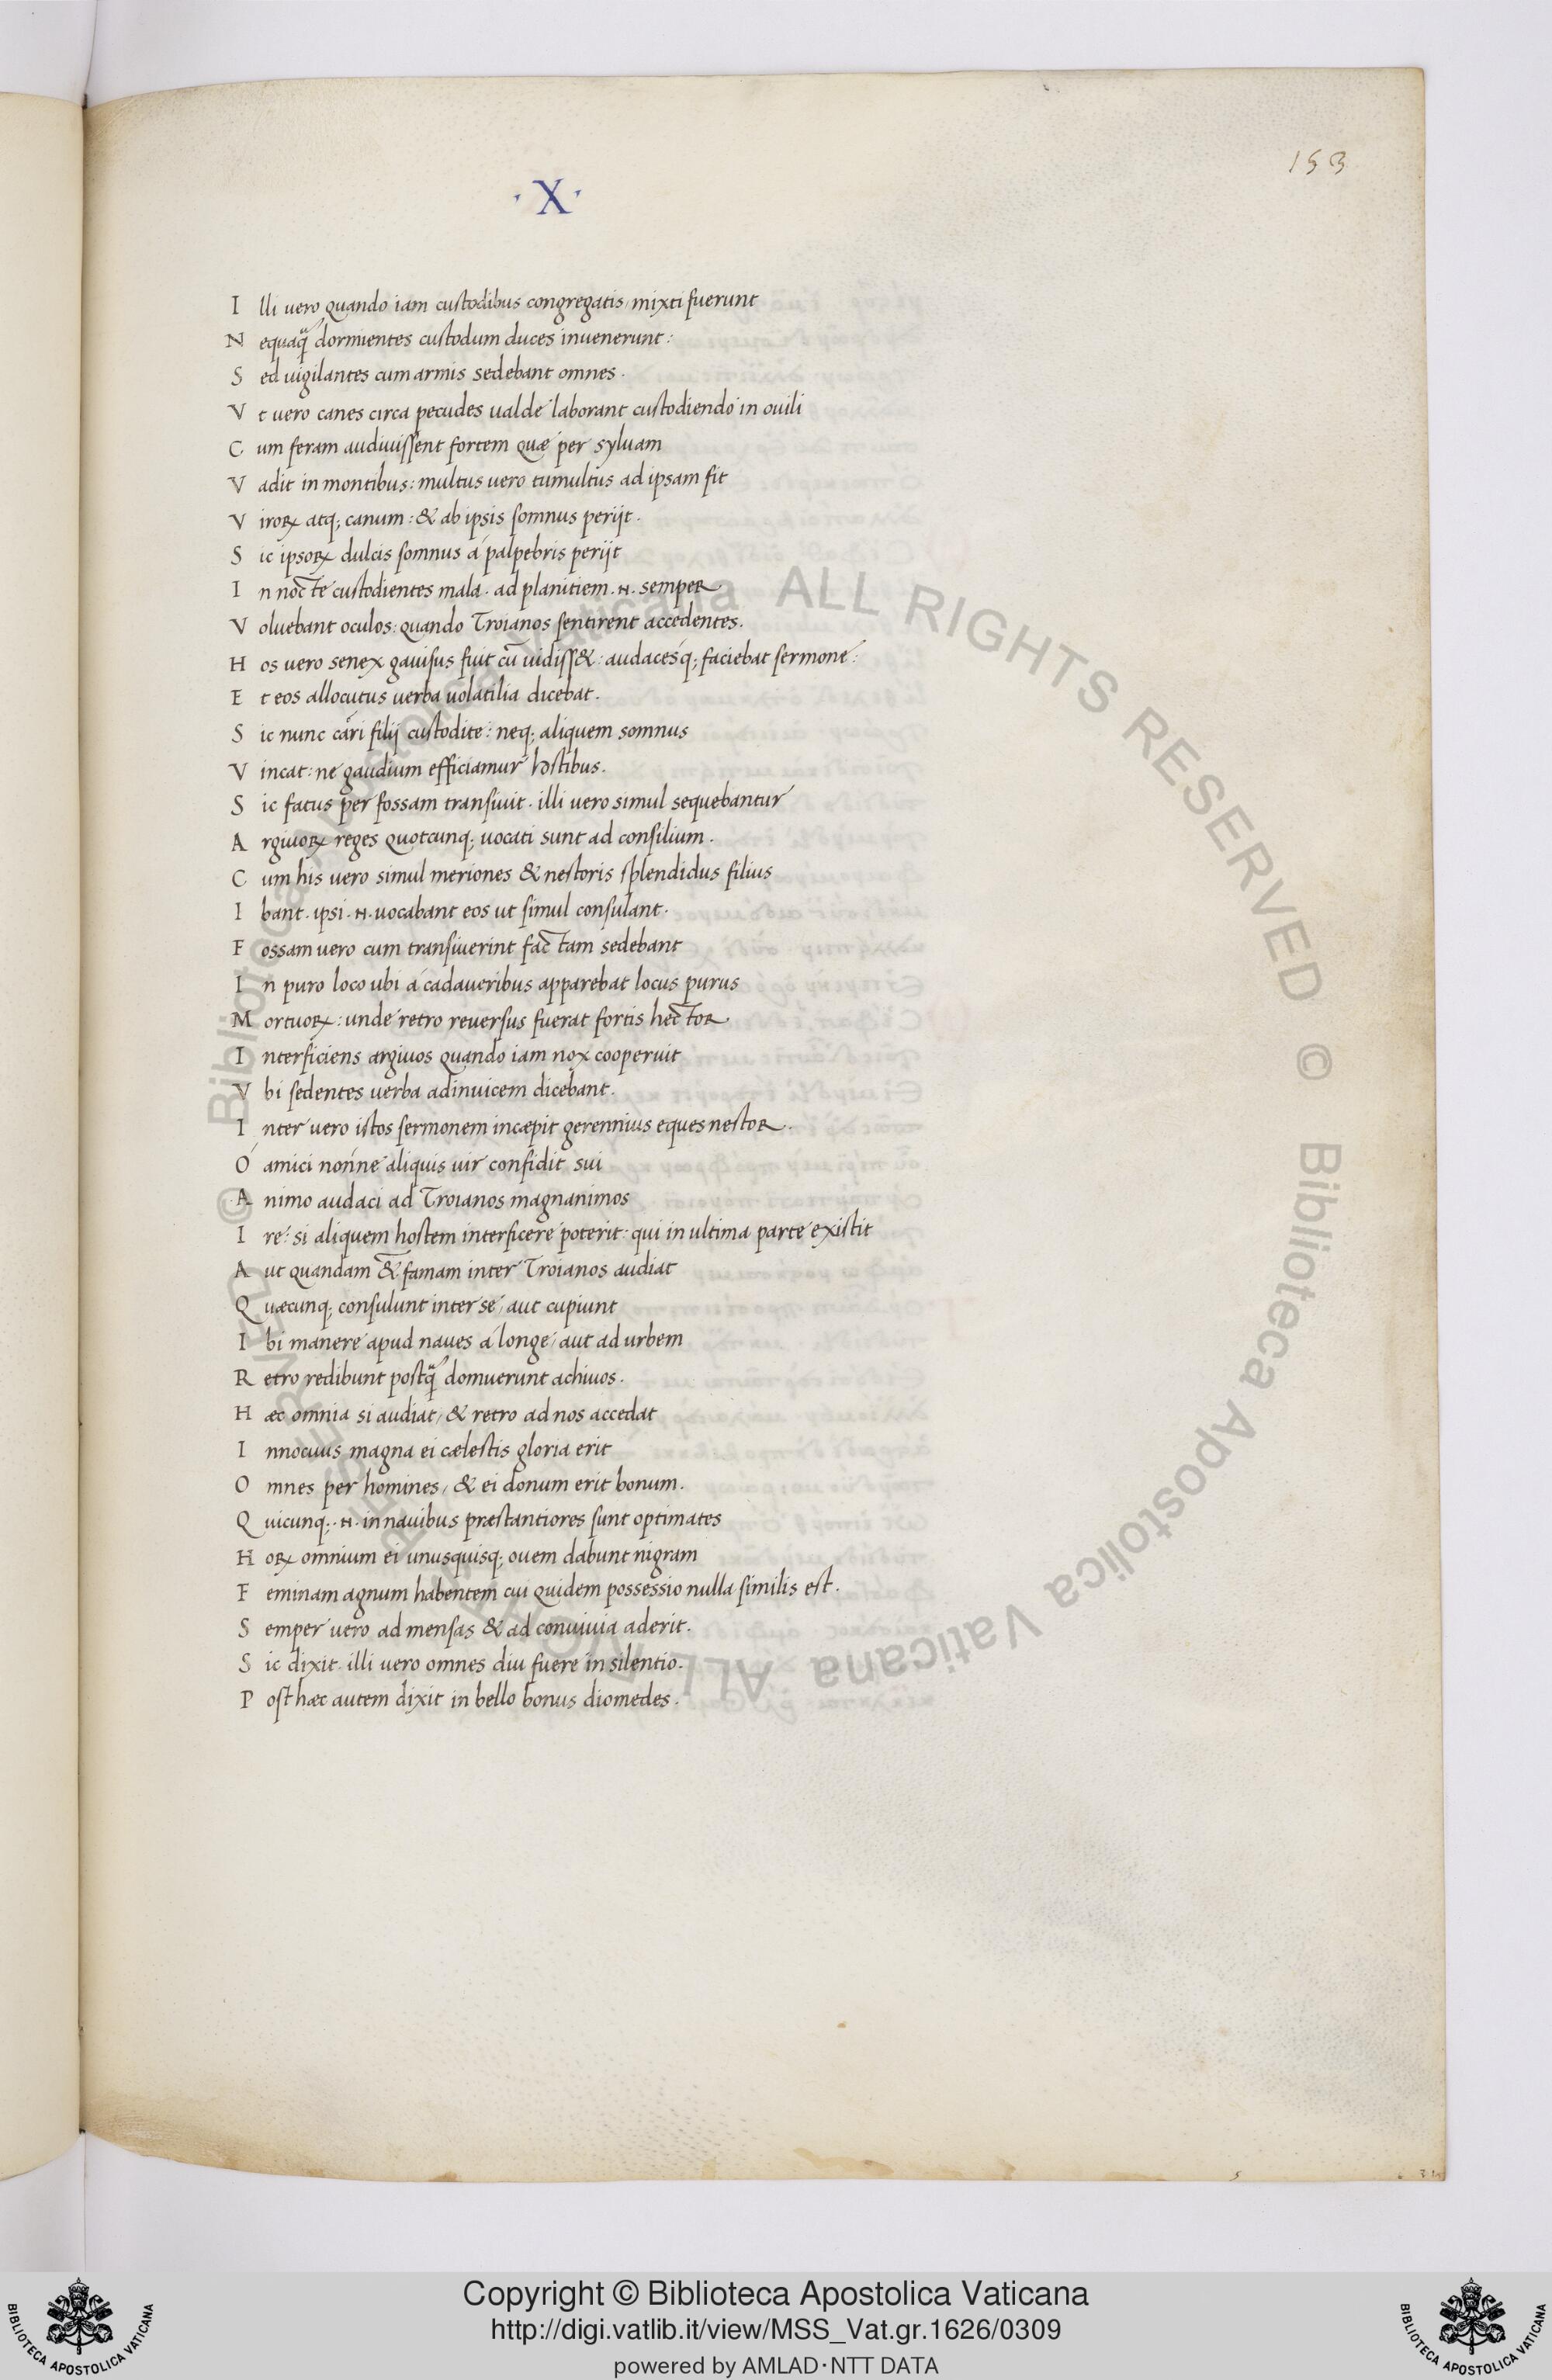 153
· X ·
Illi uero quando iam custodibus congregatis, mixti fuerunt
Nequaq̃ dormientes custodum duces inuenerunt:
Sed uigilantes cum armis sedebant omnes.
Vt uero canes circa pecudes ualde laborant custodiendo in ouili
Cum feram audiuissent fortem quæ per syluam
Vadit in montibus: multus uero tumultus ad ipsam fit
Viroꝝ atq; canum: & ab ipsis somnus perijt.
Sic ipsoꝝ dulcis somnus á palpebris perijt
In nocte custodientes mala. ad planitiem .н. semper
Voluebant oculos: quando Troianos sentirent accedentes.
Hos uero senex gauisus fuit cũ uidiss&: audacesq́; faciebat sermonẽ:
Et eos allocutus uerba uolatilia dicebat.
Sic nunc cári filij custodite: neq; aliquem somnus
Vincat: ne gaudium efficiamur hostibus.
Sic fatus per fossam transiuit. illi uero simul sequebantur
Argiuoꝝ reges quotcunq; uocati sunt ad consilium.
Cum his uero simul meriones & nestoris splendidus filius
Ibant. ipsi .н. uocabant eos ut simul consulant.
Fossam uero cum transiuerint factam sedebant
In puro loco ubi á cadaueribus apparebat locus purus
Mortuoꝝ: unde retro reuersus fuerat fortis hector
Interficiens argiuos quando iam nox cooperuit
Vbi sedentes uerba adinuicem dicebant.
Inter uero istos sermonem incæpit gerennius eques nestor.
Ó amici nonne aliquis uir confidit sui
Animo audaci ad Troianos magnanimos
Ire: si aliquem hostem interficere poterit: qui in ultima parte existit
Aut quandam & famam inter Troianos audiat
Quæcunq; consulunt inter se, aut cupiunt
Ibi manere apud naues á longe, aut ad urbem
Retro redibunt postq̃ domuerunt achiuos.
Hæc omnia si audiat, & retro ad nos accedat
Innocuus magna ei cælestis gloria erit
Omnes per homines, & ei donum erit bonum.
Quicunq; .н. in nauibus præstantiores sunt optimates
Hoꝝ omnium ei unusquisq; ouem dabunt nigram
Feminam agnum habentem cui quidem possessio nulla similis est.
Semper uero ad mensas & ad conuiuia aderit.
Sic dixit. illi uero omnes diu fuere in silentio.
Post hæc autem dixit in bello bonus diomedes.
© Biblioteca Apostolica Vaticana ALL RIGHTS RESERVED © Biblioteca Apostolica Vaticana ALL RIGHTS RESERVED
Copyright © Biblioteca Apostolica Vaticana
http://digi.vatlib.it/view/MSS_Vat.gr.1626/0309
powered by AMLAD·NTT DATA
BIBLIOTECA APOSTOLICA VATICANA
BIBLIOTECA APOSTOLICA VATICANA